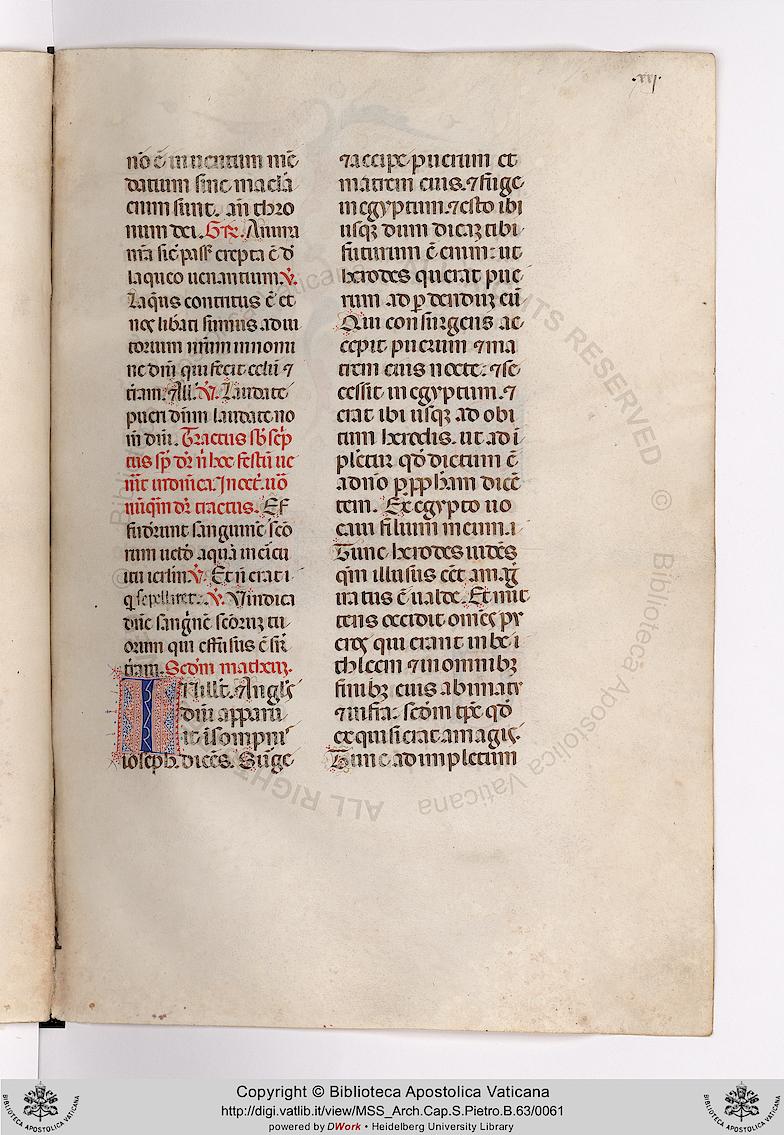 ·xxj·
nō ē inuentum mē
datium sine macla
enim sunt. an̄ thro
num dei. Gr̄. Anima
nr̄a sic̄ pass̄ erepta ē d̄
laqueo uenantium. V̄.
Laq̄us contritus ē et
nos lib̄ati sumus adiu
torium nr̄m in nomi
ne dn̄i qui fecit celū ⁊
t̄ram. All̄. V̄. Laudate
pueri dn̄m laudate no
m̄ dn̄i. Tractus sb̄ sc̄p
tus sp̄ dr̄ n̄ hoc festū ue
nit in dn̄ica. In oct̄. uō
nūqm̄ dr̄ tractus. Ef
fuderunt sanguinē sc̄o
rum uelod aquā in circu
itu ierl̄m. V̄. Et n̄ erat i
q̄ sepelliret. V̄. Vindica
dn̄e sanḡnē sc̄oruꝫ tu
orum qui effusus ē sr̄
t̄ram. Scd̄m matheuꝫ.
IN ill̄. t̄. Angl̄s
dn̄i apparu
it ī sompnis
ioseph. dicēs. Surge
⁊ accipe puerum et
matrem eius. ⁊ fuge
in egyptum. ⁊ esto ibi
usqꝫ dum dicaꝫ tibi
futurum ē enim: ut
herodes querat pue
rum ad ꝑdenduꝫ eū
Qui consurgens ac
cepit puerum ⁊ ma
trem eius nocte: ⁊ se
cessit in egyptum. ⁊
erat ibi usqꝫ ad obi
tum herodis. ut ad ī
pleretur qd̄ dictum ē
a dn̄o ꝑ ꝓph̄am dicē
tem. Ex egypto uo
caui filium meum.
Tunc herodes uidēs
qm̄ illusus eēt a maḡ
iratus ē ualde. Et mit
tens occidit omēs pu
eros qui erant in be
thleem ⁊ in omnibꝫ
finibꝫ eius a bimatu
⁊ infra: scd̄m tp̄s qd̄
exquisierat a magis.
Tunc adimpletum
Copyright © Biblioteca Apostolica Vaticana
http://digi.vatlib.it/view/MSS_Arch.Cap.S.Pietro.B.63/0061
powered by DWork • Heidelberg University Library